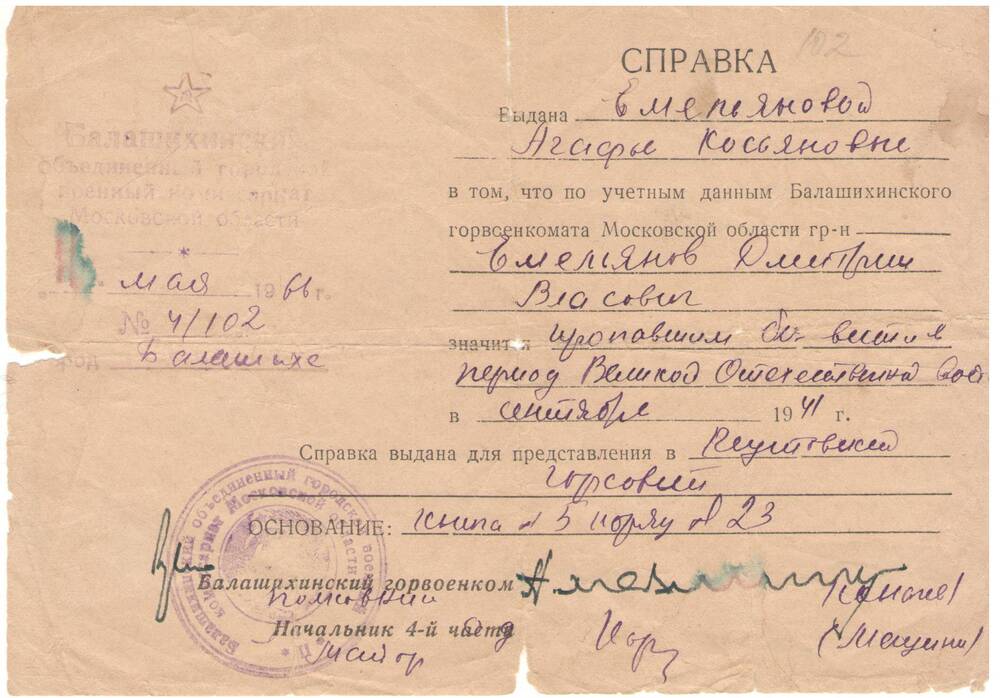 102
СПРАВКА
Балашихинский
объединенный городской
военный комиссариат
Московской области
мая 1966 г.
№ 4/102
род Балашихе
Выдана Емельяновой
Агафье Косьяновне
в том, что по учетным данным Балашихинского
горвоенкомата Московской области гр-н
Емельянов Дмитрий
Власович
значится пропавшим без вести в
период Великой Отечественной
в сентябре 1941 г.
Справка выдана для представления в Реутовский
горсовет
ОСНОВАНИЕ: книга № 5 поряд № 23
Балашихинский горвоенком
полковник
Начальник 4-й части
майор
Балашихинский объединенный городской военный
комиссариат Московской области